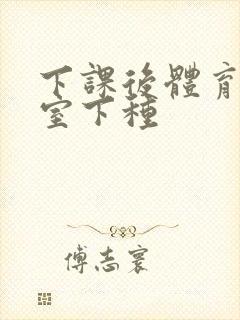 下課後體育
室下種
傅志寰